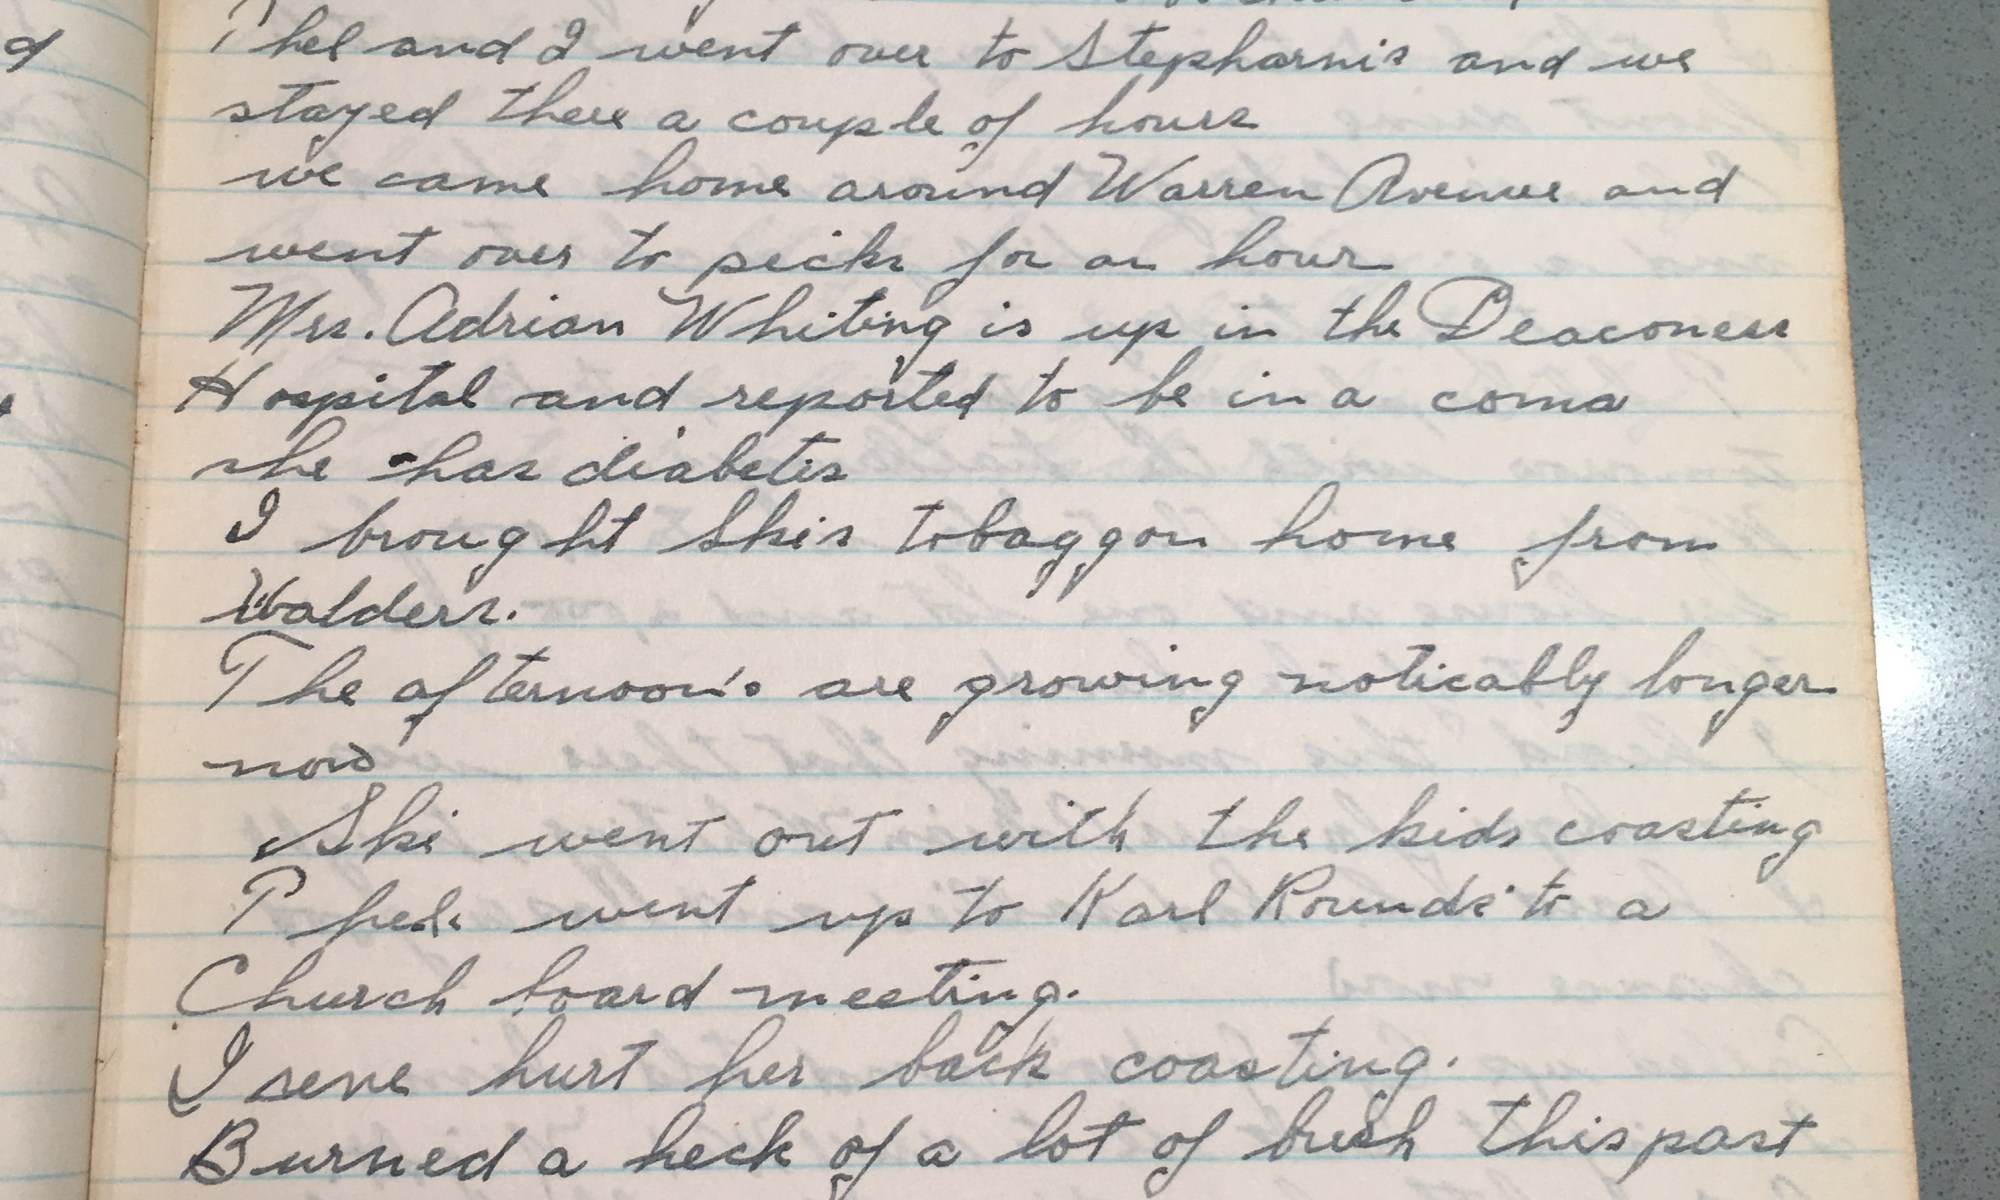 Phel and I went over to Stepharnis and we
stayed there a couple of hours
we came home around Warren Avenue and
went over to picks for an hour
Mrs. Adrian Whiting is up in the Deaconess
Hospital and reported to be in a coma
she has diabetis
I brought Skis tobaggon home from
Walders.
The afternoon's are growing noticably longer
now
Ski went out with the kids coasting
went up to Karl Rounds' to a
Church board meeting.
Irene hurt her back coasting.
Burned a heck of a lot of brush this past